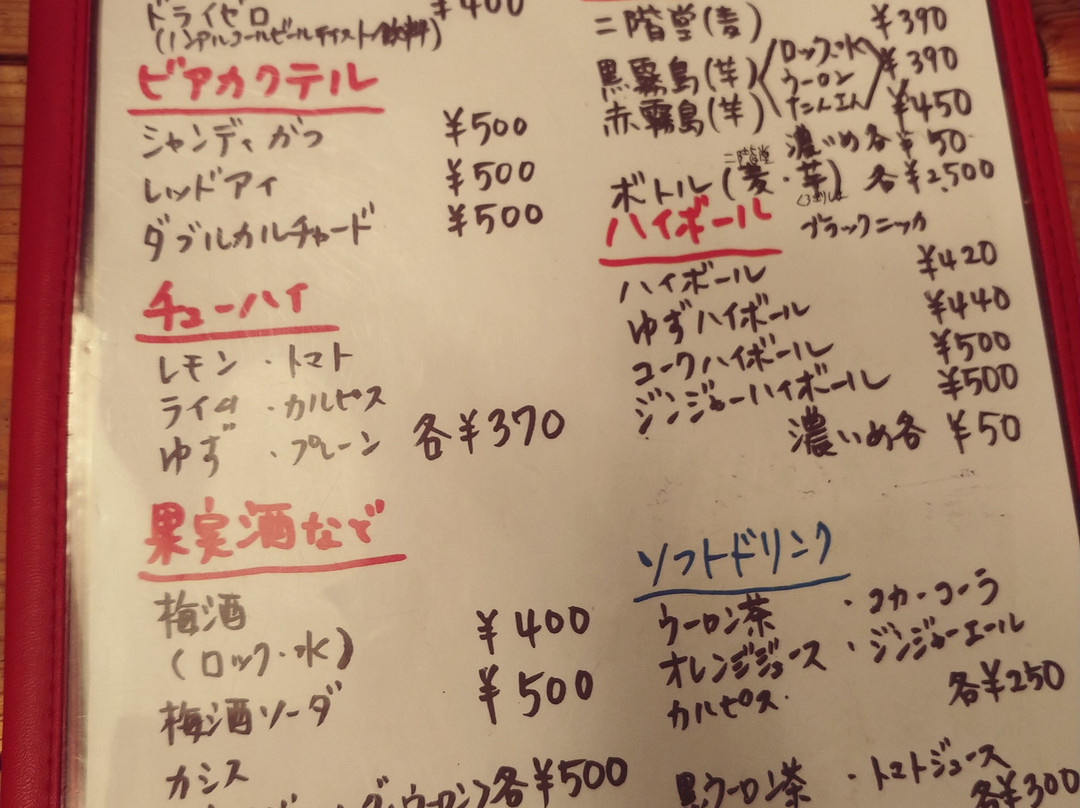 ドライゼロ ¥400
(ノンアルコールビールテイスト飲料)
ビアカクテル
シャンディガフ ¥500
レッドアイ ¥500
ダブルカルチャード ¥500
チューハイ
レモン ・トマト
ライム ・カルピス
ゆず ・プレーン 各¥370
果実酒など
梅酒 ¥400
(ロック・水)
梅酒ソーダ ¥500
カシス
ウーロン)各¥500
二階堂(麦) ¥390
黒霧島(芋) ¥390
赤霧島(芋) ¥450
ロック・水
ウーロン
たんさん
濃いめ各¥50
二階堂
ボトル(麦・芋) 各¥2,500
くろきりしま
ハイボール ブラックニッカ
ハイボール ¥420
ゆずハイボール ¥440
コークハイボール ¥500
ジンジャーハイボール ¥500
濃いめ各 ¥50
ソフトドリンク
ウーロン茶 ・コカ・コーラ
オレンジジュース ・ジンジャーエール
カルピス 各¥250
黒ウーロン茶 ・トマトジュース
各¥300